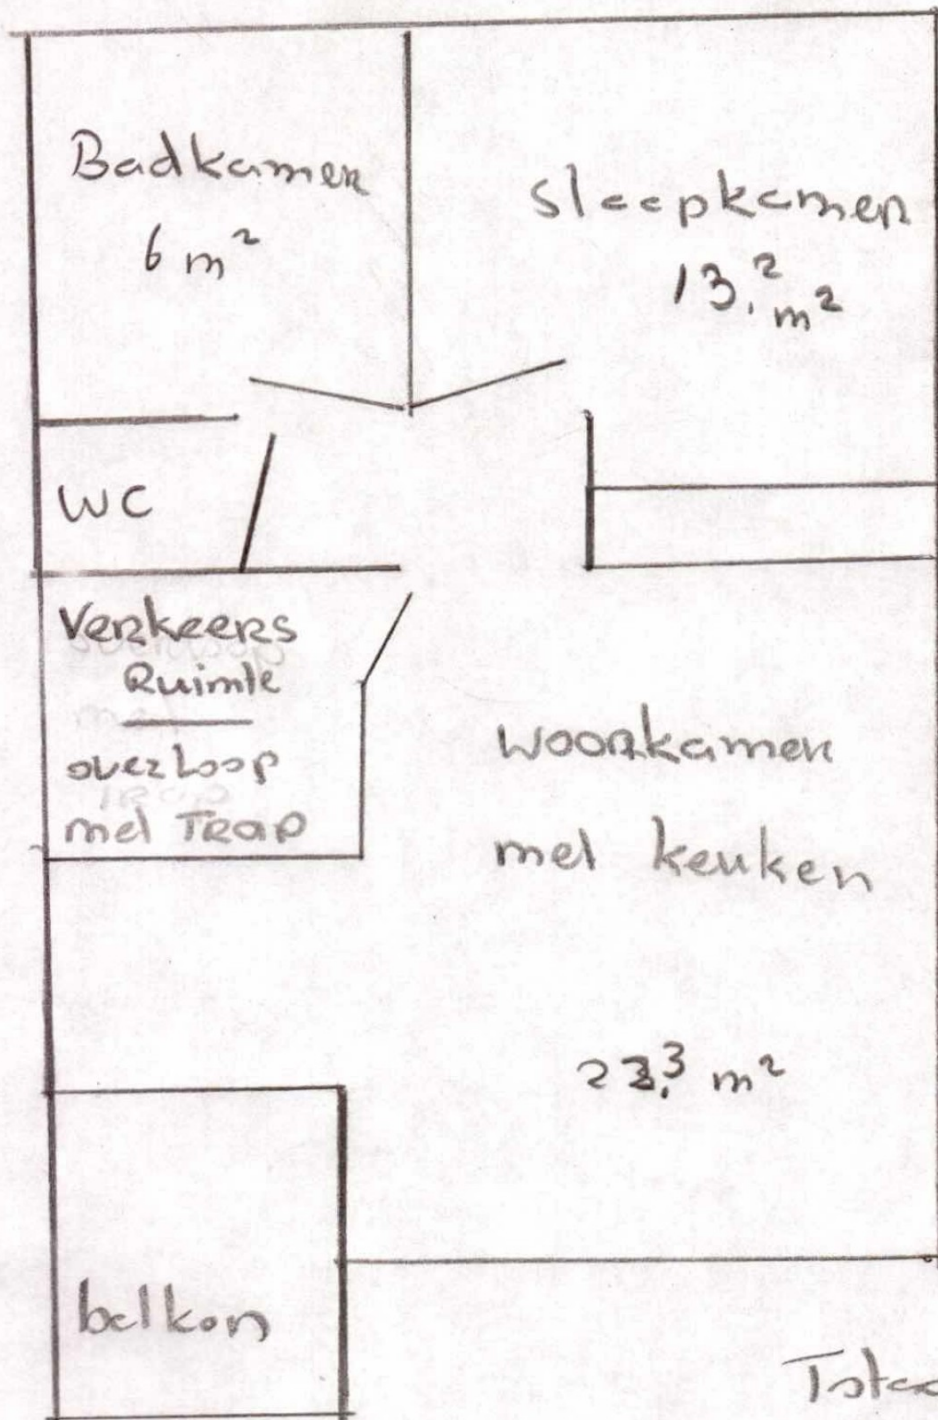 Badkamer
6 m²
Sleepkamer
13,² m²
WC
Verkeers
Ruimte
overloop
met Trap
Woonkamer
met keuken
m²
balkon